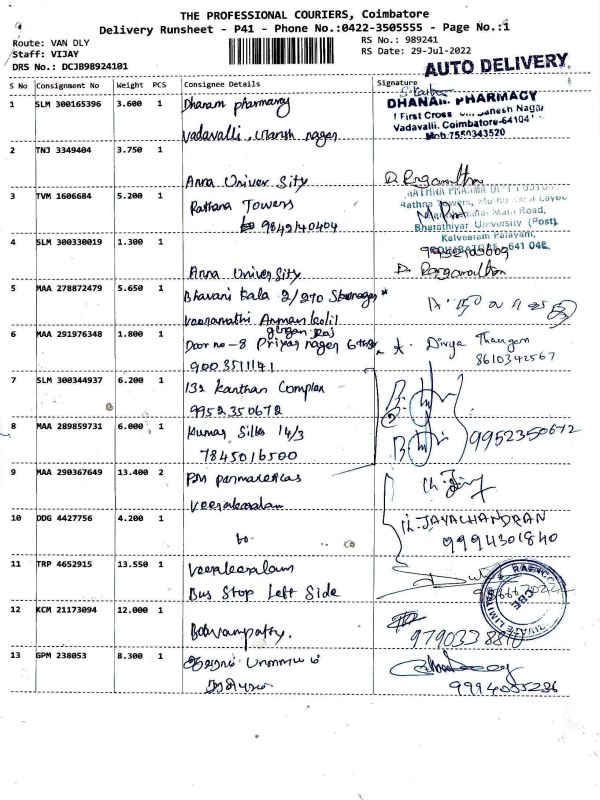 THE PROFESSIONAL COURIERS, Coimbatore
Delivery Runsheet - P41 - Phone No.:0422-3505555 - Page No.:1
Route: VAN DLY
RS No.: 989241
Staff: VIJAY
RS Date: 29-Jul-2022
DRS No.: DCJB98924101
AUTO DELIVERY
S No Consignment No Weight PCS Consignee Details Signature
1 SLM 300165396 3.600 1 Dhanam pharmacy
vadavalli, nager
DHANAM PHARMACY
1 First Cross Ganesh Nagar
Vadavalli, Coimbatore-641041
Mob 7550343520
2 TNJ 3349404 3.750 1
Anna University
3 TVM 1606684 5.200 1 Rathana Towers
9842140404
Road,
Bharathiyar University (Post)
Kalveeram Palayam,
641 046,
4 SLM 300330019 1.300 1
Anna University
5 MAA 278872479 5.650 1 Bhavani Bala 2/270
Amman kolil
6 MAA 291976348 1.800 1 Door no-8 Priya nager 6th
9003511141
Divya Thangam
8610342567
7 SLM 300344937 6.200 1 132 Kanthan Complex
9952350672
8 MAA 289859731 6.000 1 Kumar Silks 14/3
7845016500
9952350672
9 MAA 290367649 13.400 2
veerakeralam
10 DDG 4427756 4.200 1
to
K. JAYACHANDRAN
9994301840
11 TRP 4652915 13.550 1 veerakeralam
Bus Stop Left Side
12 KCM 21173094 12.000 1
9790338810
13 GPM 238053 8.300 1
9994055236